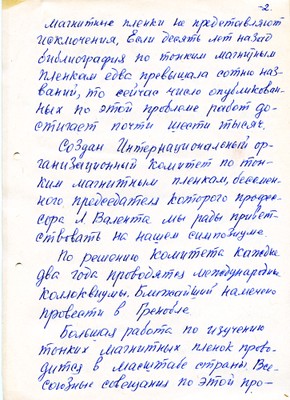 -2.
магнитные пленки не представляют
исключения. Если десять лет назад
библиография по тонким магнитным
пленкам едва превышала сотню наз-
ваний, то сейчас число опубликован-
ных по этой проблеме работ до-
стигает почти шести тысяч.
Создан Интернациональный ор-
ганизационный комитет по тон-
ким магнитным пленкам, бессмен-
ного председателя которого профес-
сора Л. Валента мы рады привет-
ствовать на нашем симпозиуме.
По решению Комитета каждые
два года проводятся международные
Коллоквиумы. Ближайший намечено
провести в Гренобле.
Большая работа по изучению
тонких магнитных пленок прово-
дится в масштабе страны. Все-
союзные совещания по этой про-